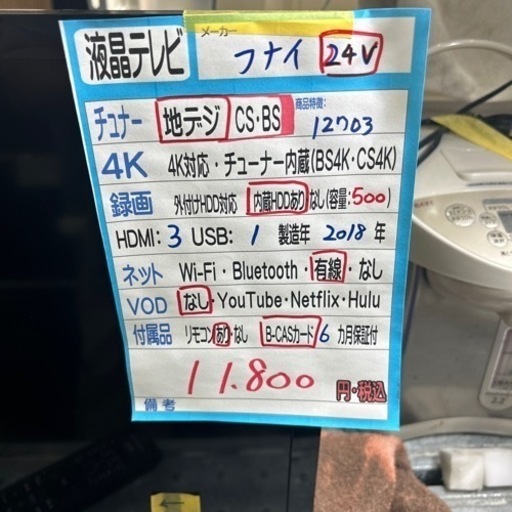 液晶テレビ
メーカー
フナイ 24V
チュナー 地デジ CS・BS
商品特徴:
12703
4K 4K対応・チューナー内蔵(BS4K・CS4K)
録画 外付けHDD対応 内蔵HDDあり なし(容量:500)
HDMI: 3 USB: 1 製造年 2018年
ネット Wi-Fi・Bluetooth・有線・なし
VOD なし・YouTube・Netflix・Hulu
付属品 リモコンあり・なし B-CASカード 6カ月保証付
11.800 円・税込
備考